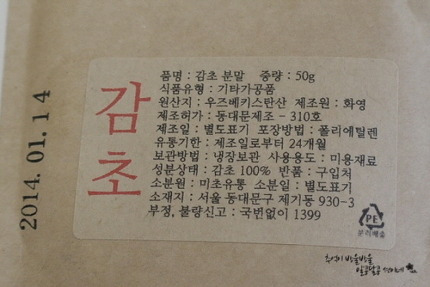 2014. 01. 14
감초
품명 : 감초 분말 중량 : 50g
식품유형 : 기타가공품
원산지 : 우즈베키스탄산 제조원 : 화영
제조허가 : 동대문제조 - 310호
제조일 : 별도표기 포장방법 : 폴리에틸렌
유통기한 : 제조일로부터 24개월
보관방법 : 냉장보관 사용용도 : 미용재료
성분상태 : 감초 100% 반품 : 구입처
소분원 : 미초유통 소분일 : 별도표기
소재지 : 서울 동대문구 제기동 930-3
부정, 불량신고 : 국번없이 1399
PE
분리배출